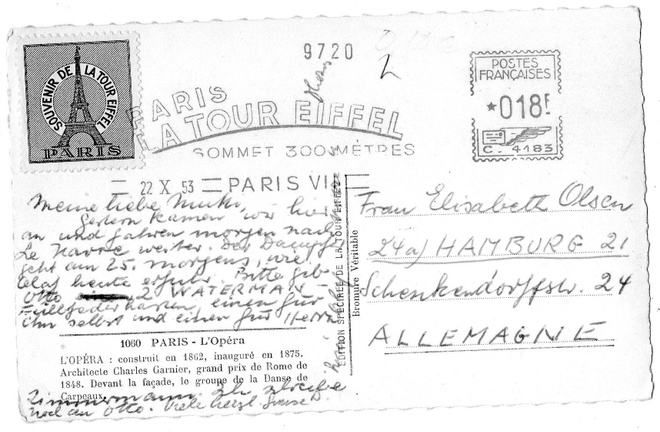 SOUVENIR DE LA TOUR EIFFEL
PARIS
9720
PARIS
LA TOUR EIFFEL
SOMMET 300 MÈTRES
22 X 53
PARIS VII
POSTES
FRANÇAISES
*018F
C. 4183
Meine liebe Mutti,
Gestern kamen wir hier
an und fahren morgen nach
Le Havre weiter. Der Dampfer
geht am 25. morgens, wie
heute erfuhr. Bitte gib
Otto 2 WATERMAN-
Füllfederhalter, einen für
ihn selbst und einen für Herrn
Zimmermann. Ich schreibe
noch an Otto. Viele herzl. Grüsse
ÉDITION SPÉCIALE DE LA TOUR EIFFEL
Bromure Véritable
1060 PARIS - L'Opéra
L'OPÉRA : construit en 1862, inauguré en 1875.
Architecte Charles Garnier, grand prix de Rome de
1848. Devant la façade, le groupe de la Danse de
Carpeaux.
Frau Elisabeth Olsen
24a) HAMBURG 21
Schenkendorffstr. 24
ALLEMAGNE